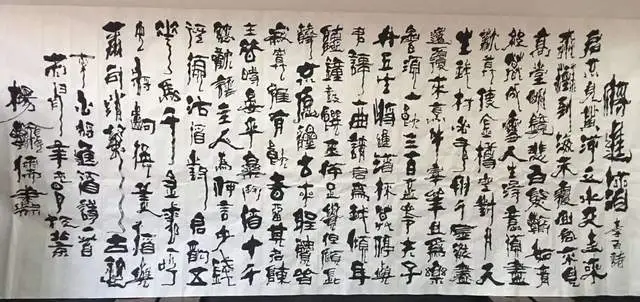 將進酒 李白詩
君不見黃河之水天上來
奔流到海不復回君不見
高堂明鏡悲白髮朝如青
絲暮成雪人生得意須盡
歡莫使金樽空對月天
生我材必有用千金散盡
還復來烹羊宰牛且為樂
會須一飲三百杯岑夫子
丹丘生將進酒杯莫停與
君歌一曲請君為我傾耳
聽鐘鼓饌玉不足貴但願長
醉不願醒古來聖賢皆
寂寞惟有飲者留其名陳
王昔時宴平樂斗酒十千
恣歡謔主人為何言少錢
徑須沽酒對君酌五
花馬千金裘呼
兒將出換美酒與
爾同銷萬古愁
李白將進酒詩一首
年
楊儒書